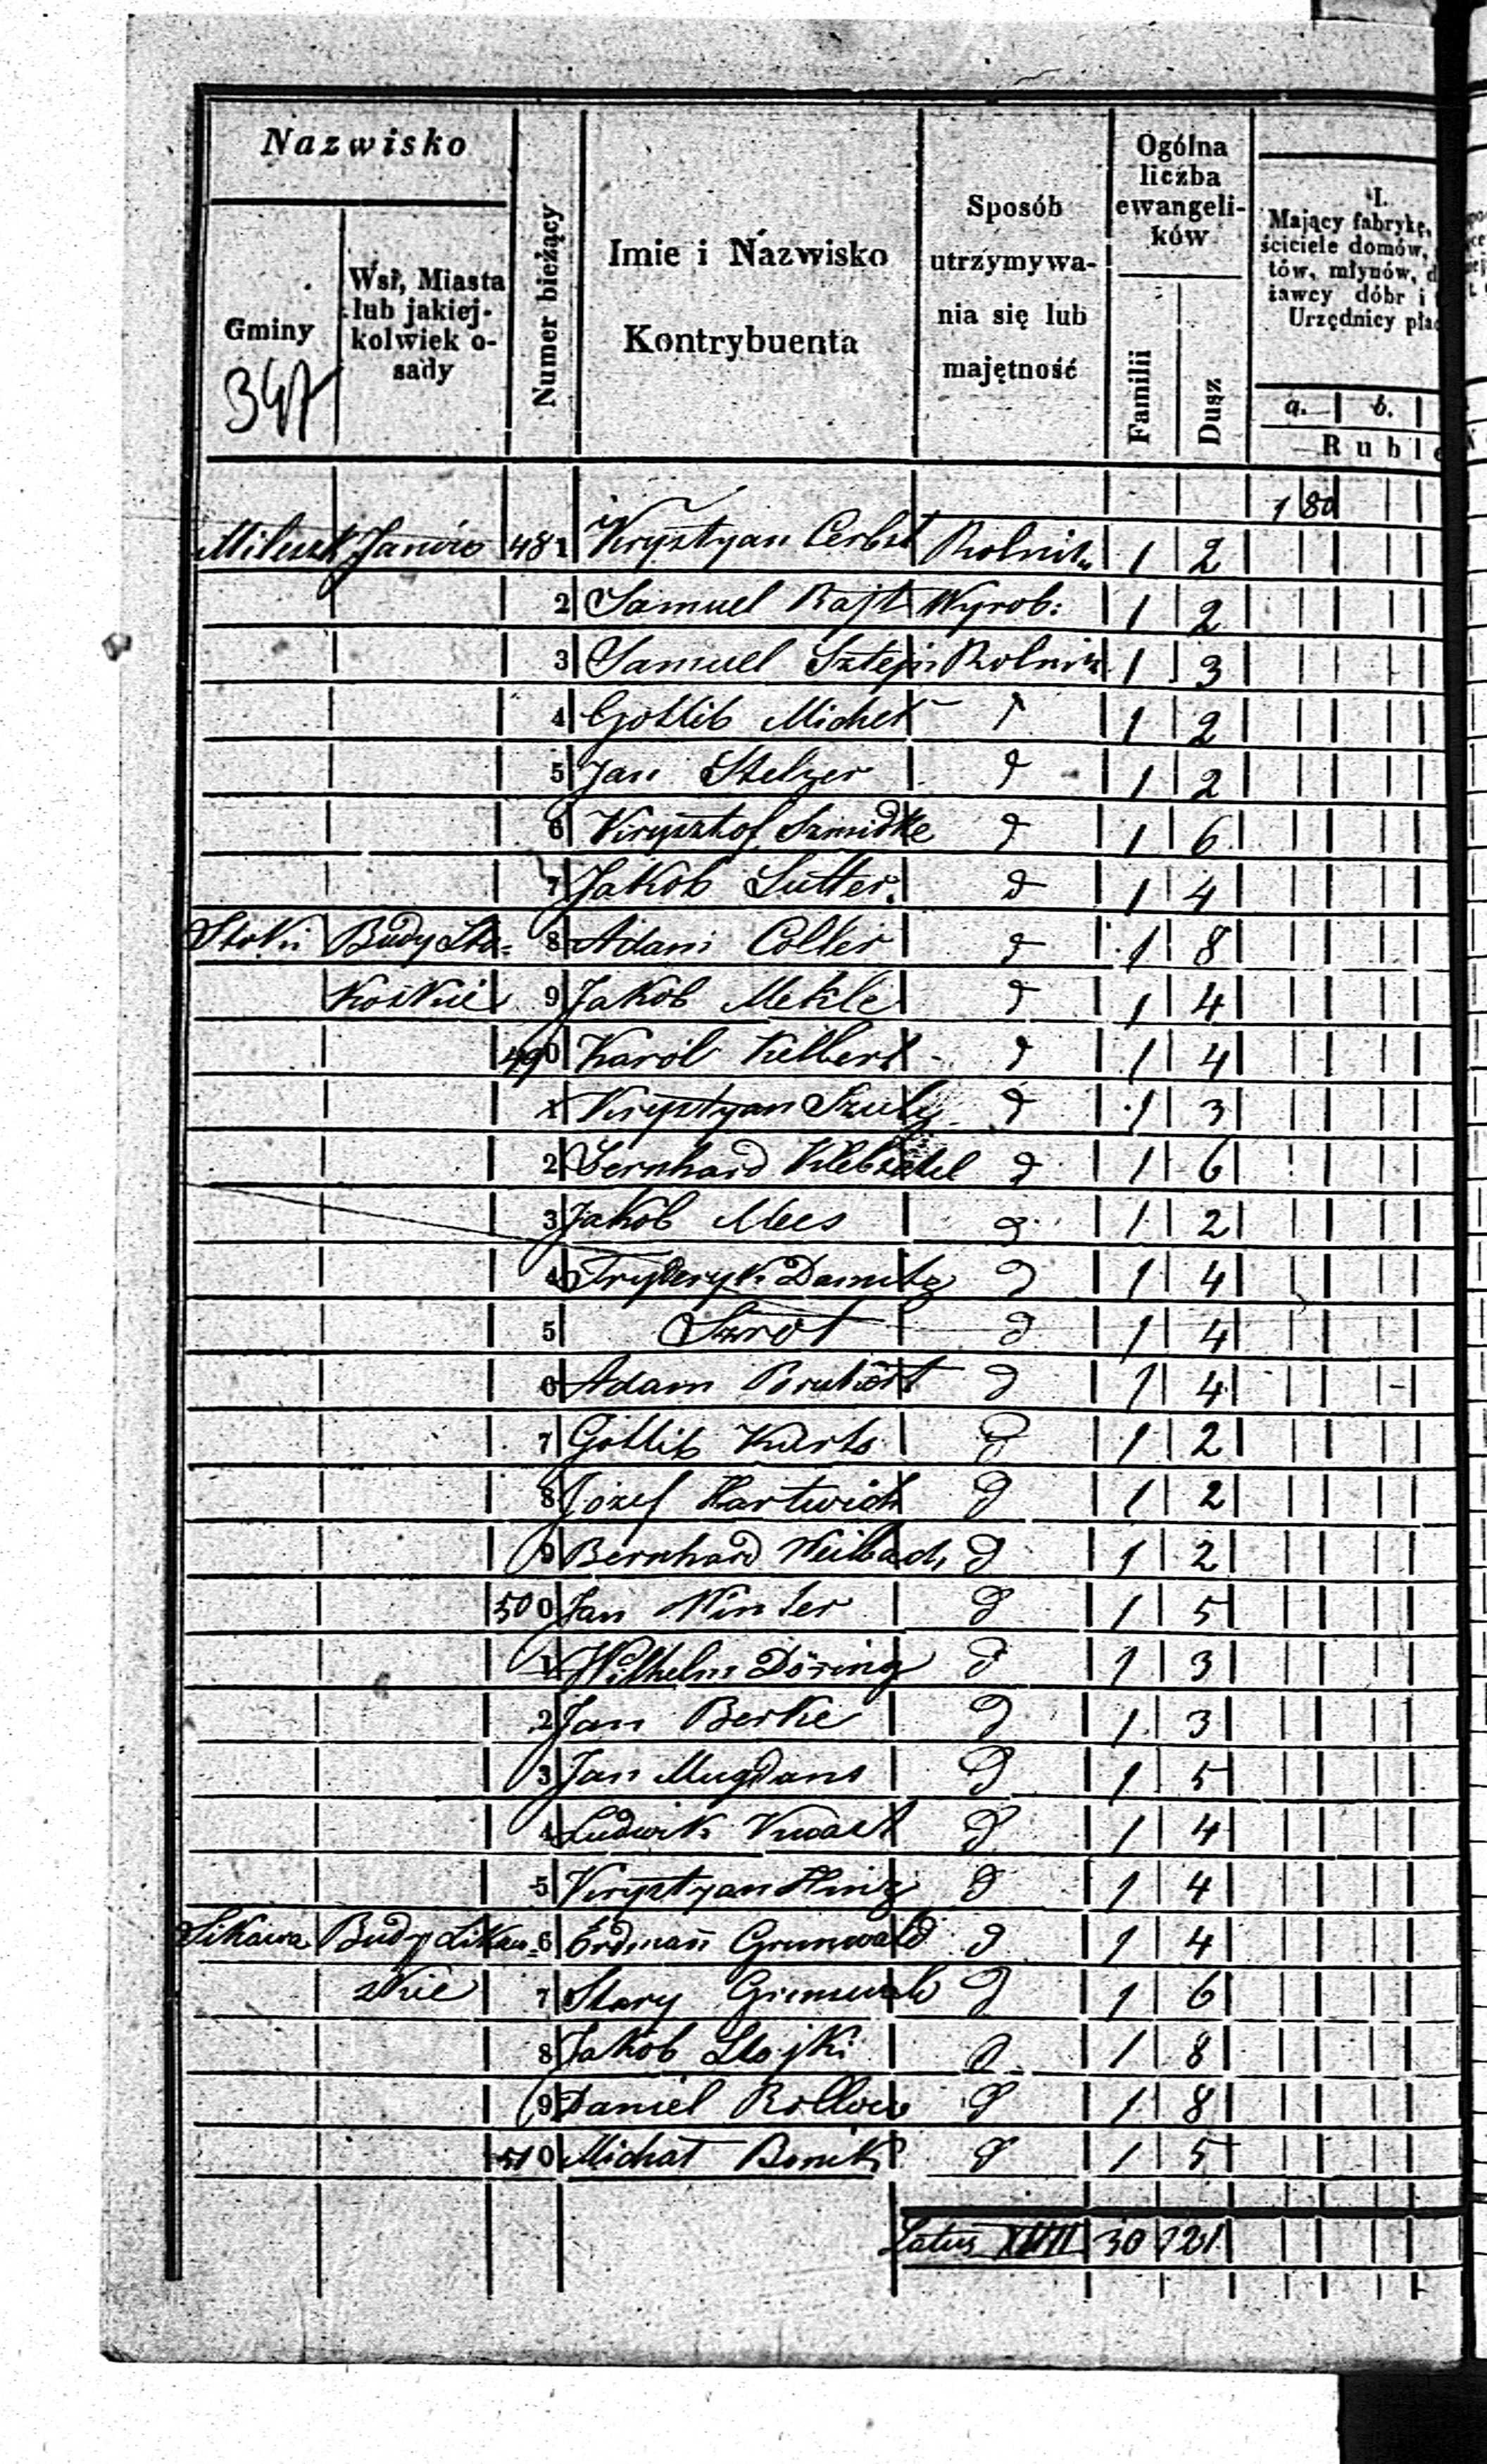 Nazwisko
Gminy
347
Wsi, Miasta
lub jakiej-
kolwiek o-
sady
Numer bieżący
Imie i Nazwisko
Kontrybuenta
Sposób
utrzymywa-
nia się lub
majętność
Ogólna
liczba
ewangeli-
ków
Familii
Dusz
I.
Mający fabrykę,
ściciele domów,
tów, młynów, d
żawcy dóbr i
Urzędnicy płac
a. b.
Ruble
1 80
Mileszk Janów 481 Krysztyan Cerbst Rolnik 1 2
2 Samuel Rajt Wyrob: 1 2
3 Samuel Sztejn Rolnik 1 3
4 Gottlib Michel d 1 2
5 Jan Stelzer d 1 2
6 Krysztof Szmidke d 1 6
7 Jakob Sutter d 1 4
Stoki Budy Sto- 8 Adam Colker d 1 8
kośkie 9 Jakob Mekle d 1 4
490 Karol Kilbert d 1 4
1 Krysztyan Szulz d 1 3
2 Bernhard d 1 6
3 Jakob Mees d 1 2
4 Fryderyk Damitz d 1 4
5 Szrot d 1 4
6 Adam d 1 4
7 Gottlib Kurts d 1 2
8 Józef Hartwich d 1 2
9 Bernhard Weilbach d 1 2
500 Jan Winter d 1 5
1 Wilhelm Döring d 1 3
2 Jan Berke d 1 3
3 Jan Mugdans d 1 5
4 Ludwik Kwast d 1 4
5 Krysztyan Hinz d 1 4
Sikawa Budy Sikaw- 6 Erdmañ Grunwald d 1 4
skie 7 Stary Grunwald d 1 6
8 Jakob Stojki d 1 8
9 Daniel Rollow d 1 8
510 Michał Bonik d 1 5
Latus XVII 30 121